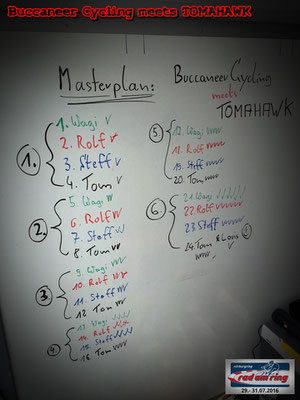 Buccaneer Cycling meets TOMAHAWK
Masterplan:
1.
1. Wagi v
2. Rolf v
3. Steff v
4. Tom v
2.
5. Wagi vv
6. Rolf vv
7. Steff vv
8. Tom vv
3
9. Wagi vvv
10. Rolf vvv
11. Steff vvv
12. Tom vvv
4
13. Wagi vvvv
14. Rolf vvvv
15. Steff vvvv
16. Tom vvvv
Buccaneer Cycling
meets
TOMAHAWK
5
17. Wagi
18. Rolf
19. Steff
20. Tom
6.
21. Wagi
22. Rolf
23. Steff
24. Tom & Louis
rad am ring
29.-31.07.2016